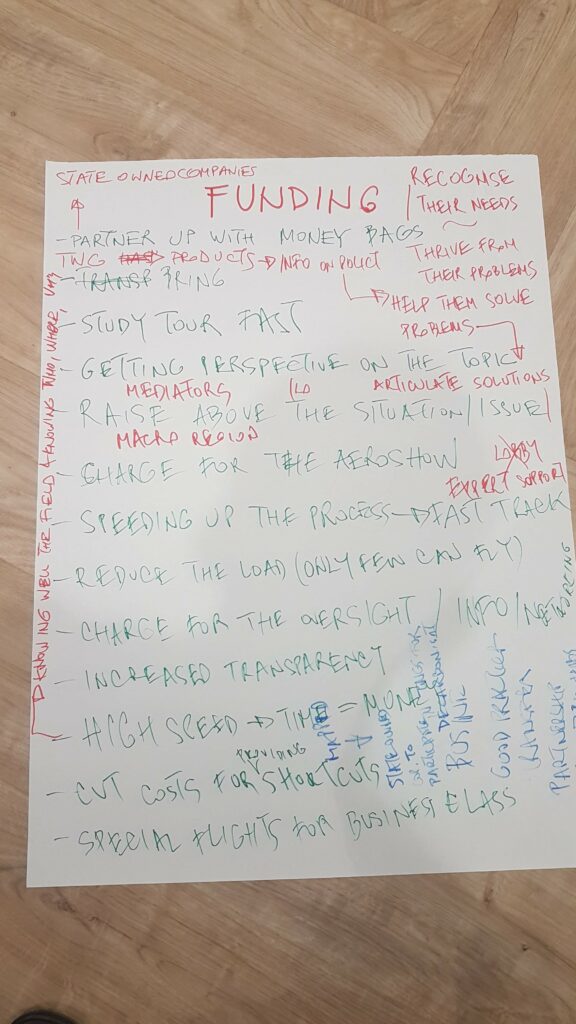 STATE OWNED COMPANIES
FUNDING
RECOGNISE
THEIR NEEDS
- PARTNER UP WITH MONEY BAGS
THRIVE FROM
THEIR PROBLEMS
TWG PRODUCTS → INFO ON POLICY
→ HELP THEM SOLVE
PROBLEMS
- TRANSP BRING
- STUDY TOUR FAST
- GETTING PERSPECTIVE ON THE TOPIC
MEDIATORS
ARTICULATE SOLUTIONS
- RAISE ABOVE THE SITUATION/ISSUE
MACRO REGION
- CHARGE FOR THE AEROSHOW
LOBBY
EXPERT SUPPORT
- SPEEDING UP THE PROCESS → FAST TRACK
- REDUCE THE LOAD (ONLY FEW CAN FLY)
- CHARGE FOR THE OVERSIGHT / INFO/NETWORKING
- INCREASED TRANSPARENCY
- HIGH SPEED → TIME = MONEY
PROVIDING
- CUT COSTS FOR SHORTCUTS
- SPECIAL FLIGHTS FOR BUSINESS CLASS
KNOWING WELL THE FIELD & KNOWING WHO, WHERE, WHY
STATE OWNED
TO
GOOD PRACTICE
TRANSFER
PARTNERSHIP